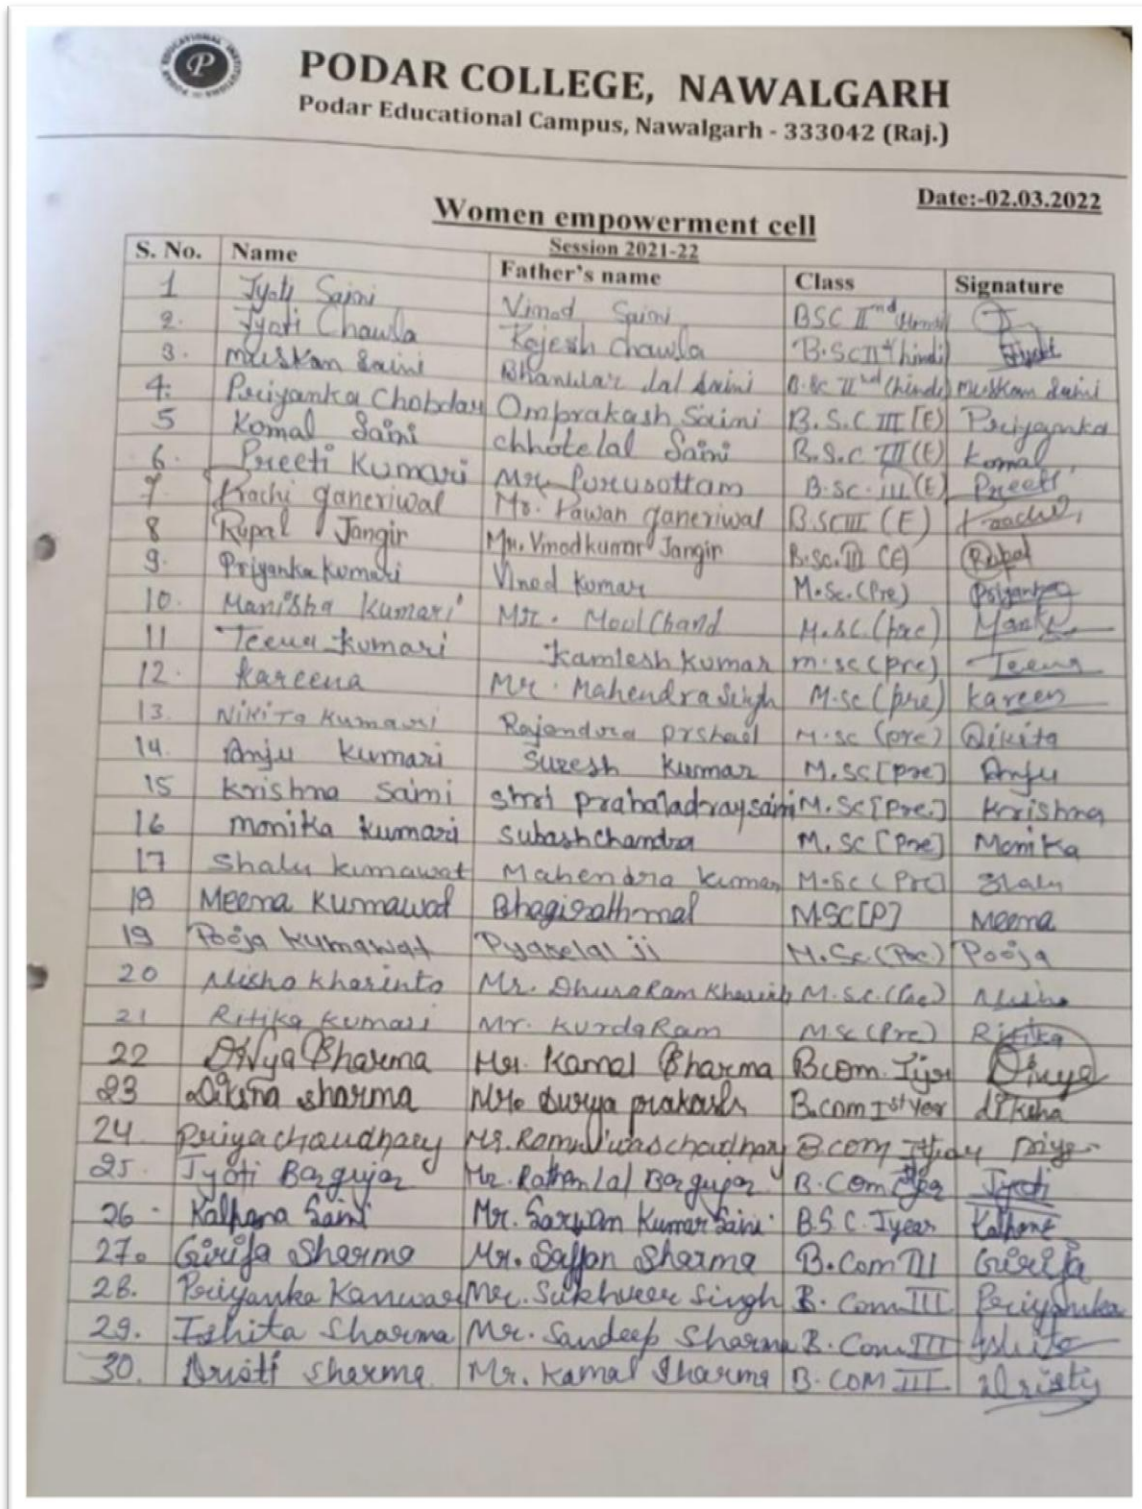 PODAR EDUCATIONAL INSTITUTIONS
P
PODAR COLLEGE, NAWALGARH
Podar Educational Campus, Nawalgarh - 333042 (Raj.)
Date:-02.03.2022
Women empowerment cell
Session 2021-22
S. No. Name Father's name Class Signature
1 Jyoti Saini Vinod Saini BSC IInd
2. Jyoti Chawla Rajesh Chawla B.Sc II (hindi) Jyoti
3. Muskan Saini Bhanwar lal Saini B.Sc IInd (hindi) Muskan Saini
4. Priyanka Chobdar Omprakash Saini B.S.C III [E) Priyanka
5 Komal Saini chhotelal Saini B.S.C III (E) Komal
6. Preeti Kumari Mr. Purusottam B.Sc. III (E) Preeti
7 Prachi Ganeriwal Mr. Pawan Ganeriwal B.SC III (E) Prachi
8 Rupal Jangir Mr. Vinod kumar Jangir B.Sc. III (E) Rupal
9. Priyanka kumari Vinod Kumar M.Sc. (Pre) Priyanka
10. Manisha Kumari Mr. MoolChand M.SC. (pre)
11 Teena kumari Kamlesh kumar m.sc (pre) Teena
12. Kareena Mr. Mahendra Singh M.sc (pre) Kareen
13. Nikita Kumari Rajendra M.sc (pre) Nikita
14. Anju Kumari Suresh Kumar M.SC [pre] Anju
15 Krishna Saini Shri prahaladray saini M.Sc [Pre.] Krishna
16 Monika Kumari Subash Chandra M.SC [Pre] Monika
17 Shalu kumawat Mahendra Kumar M.Sc (Pre) Shalu
18 Meena Kumawat Bhagirathmal MSC[P] Meena
19 Pooja Kumawat Pyarelal ji M.Sc. (Pre.) Pooja
20 Nisha Kharinta Mr. DhuraRam M.S.C. (Pre) Nisha
21 Ritika Kumari Mr. KurdaRam M.Sc (Pre) Ritika
22 Divya Sharma Mr. Kamal Sharma B.com. Iyr Divya
23 Diksha Sharma Mr. Surya prakash B.com Ist year diksha
24. Priya chaudhary Mr. Ramniwas choudhary B.COM Priya
25. Jyoti Bargujar Mr. Ratan lal Bargujar B.Com Jyoti
26. Kalpana Saini Mr. Sarwan Kumar Saini B.S.C. I year Kalpana
27. Girija Sharma Mr. Sajjan Sharma B.Com III Girija
28. Priyanka Kanwar Mr. Sukhveer Singh B. Com III Priyanka
29. Ishita Sharma Mr. Sandeep Sharma B. Com III Ishita
30. Dristi Sharma Mr. Kamal Sharma B.COM III Dristy